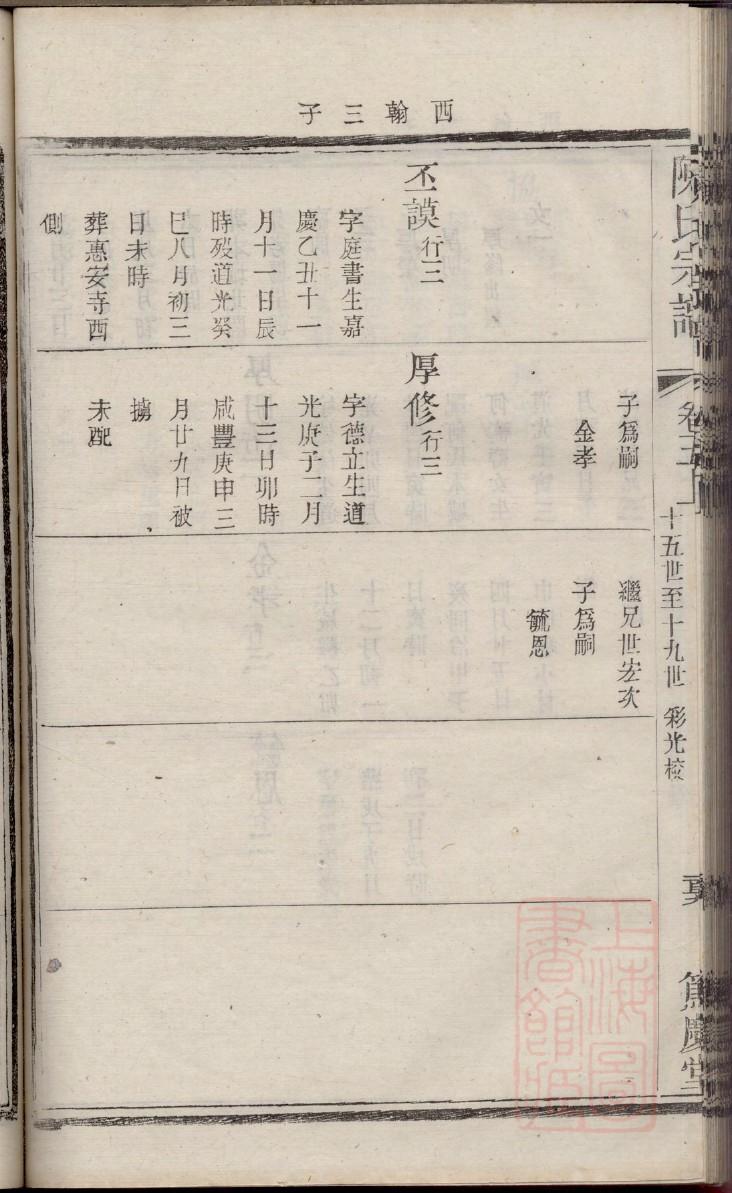 西翰三子
陳氏宗譜
卷三上
十五世至十九世 彩光校
篤慶堂
丕謨行三
字庭書生嘉
慶乙丑十一
月十一日辰
時歿道光癸
巳八月初三
日未時
葬惠安寺西
側
子爲嗣
金孝
厚修行三
字德立生道
光庚子二月
十三日卯時
咸豐庚申三
月廿九日被
擄
未配
繼兄世宏次
子爲嗣
毓恩
上海圖
書館藏